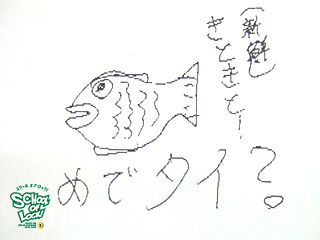 (新鮮)
きときとー
めでタイ?。
スクール オブ ロック!
SCHOOL OF LOCK!